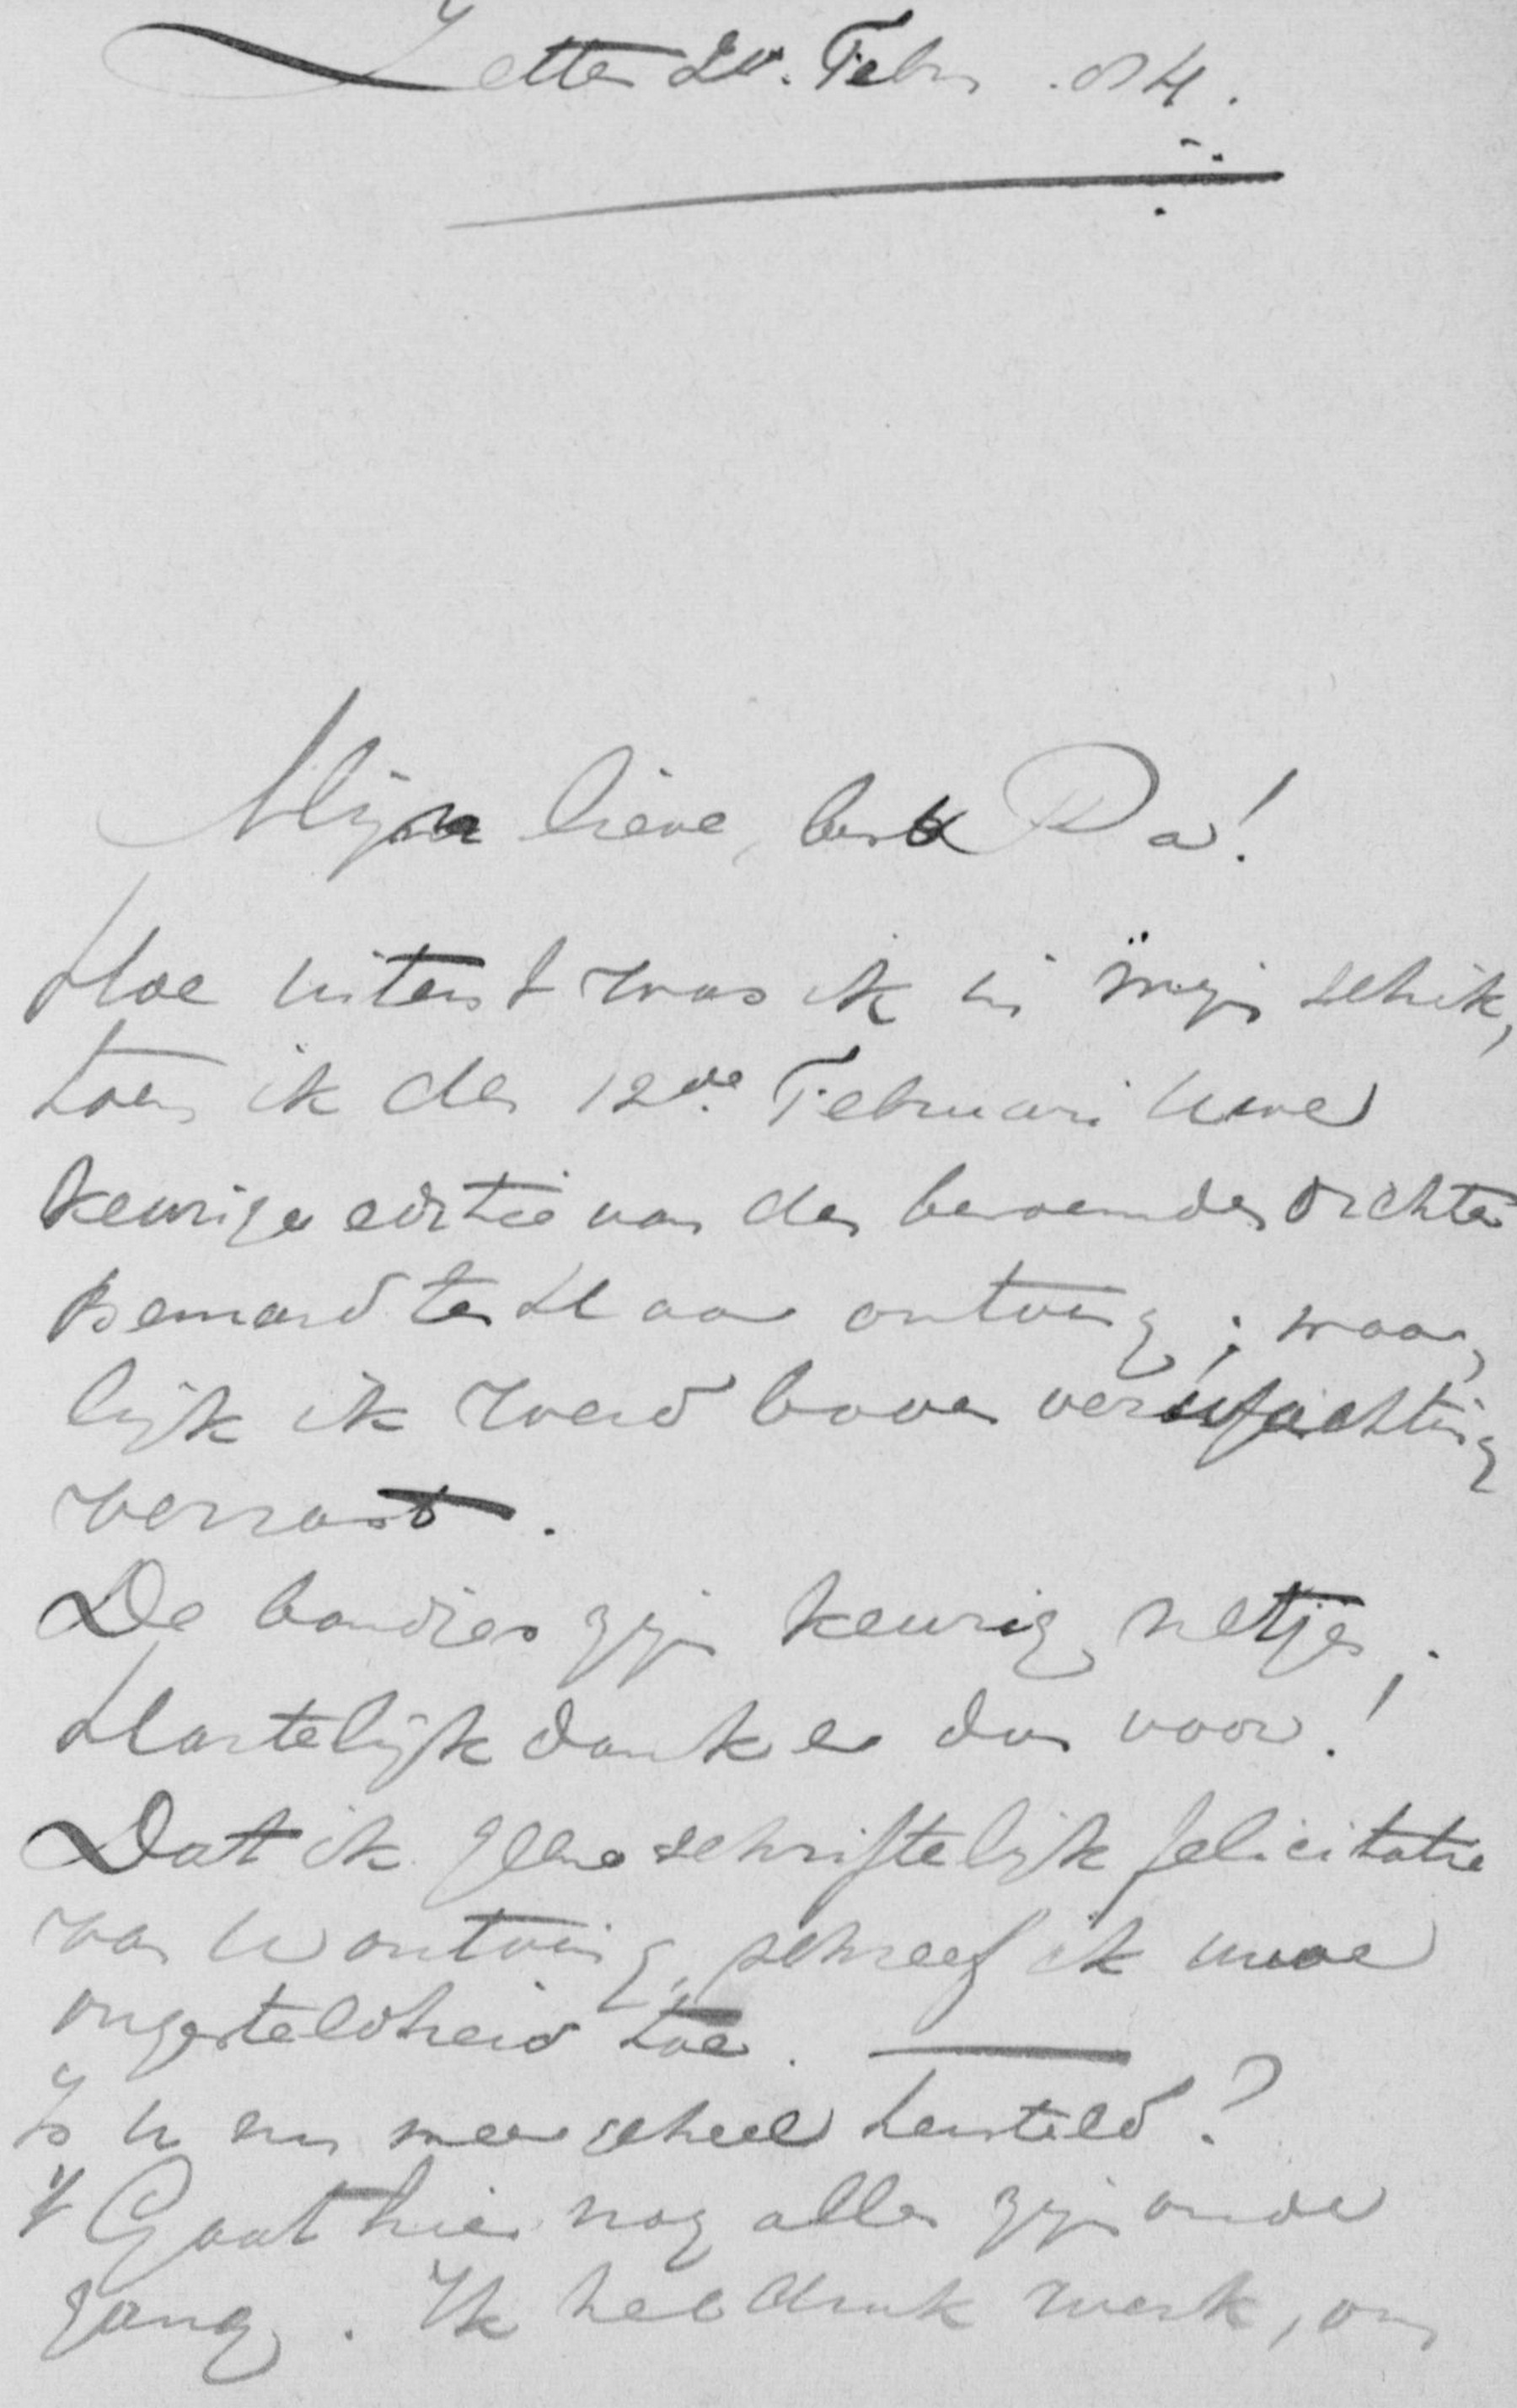 Zetten 20. Febr. 84.
Mijn lieve, beste Pa!
Hoe uiterst was ik in mijn schik,
toen ik den 12de Februari Uwe
keurige editie van den beroemden dichter
Bernard ter Haar ontving; waar,
lijk ik werd boven verwachting
verrast.
De bandjes zijn keurig netjes;
Hartelijk dank er dus voor!
Dat ik geene schriftelijk felicitatie
van U ontving, schreef ik uwe
ongesteldheid toe.
Is U nu weer geheel hersteld?
't Gaat hier nog alles zijn oude
gang. Ik heb druk werk, om